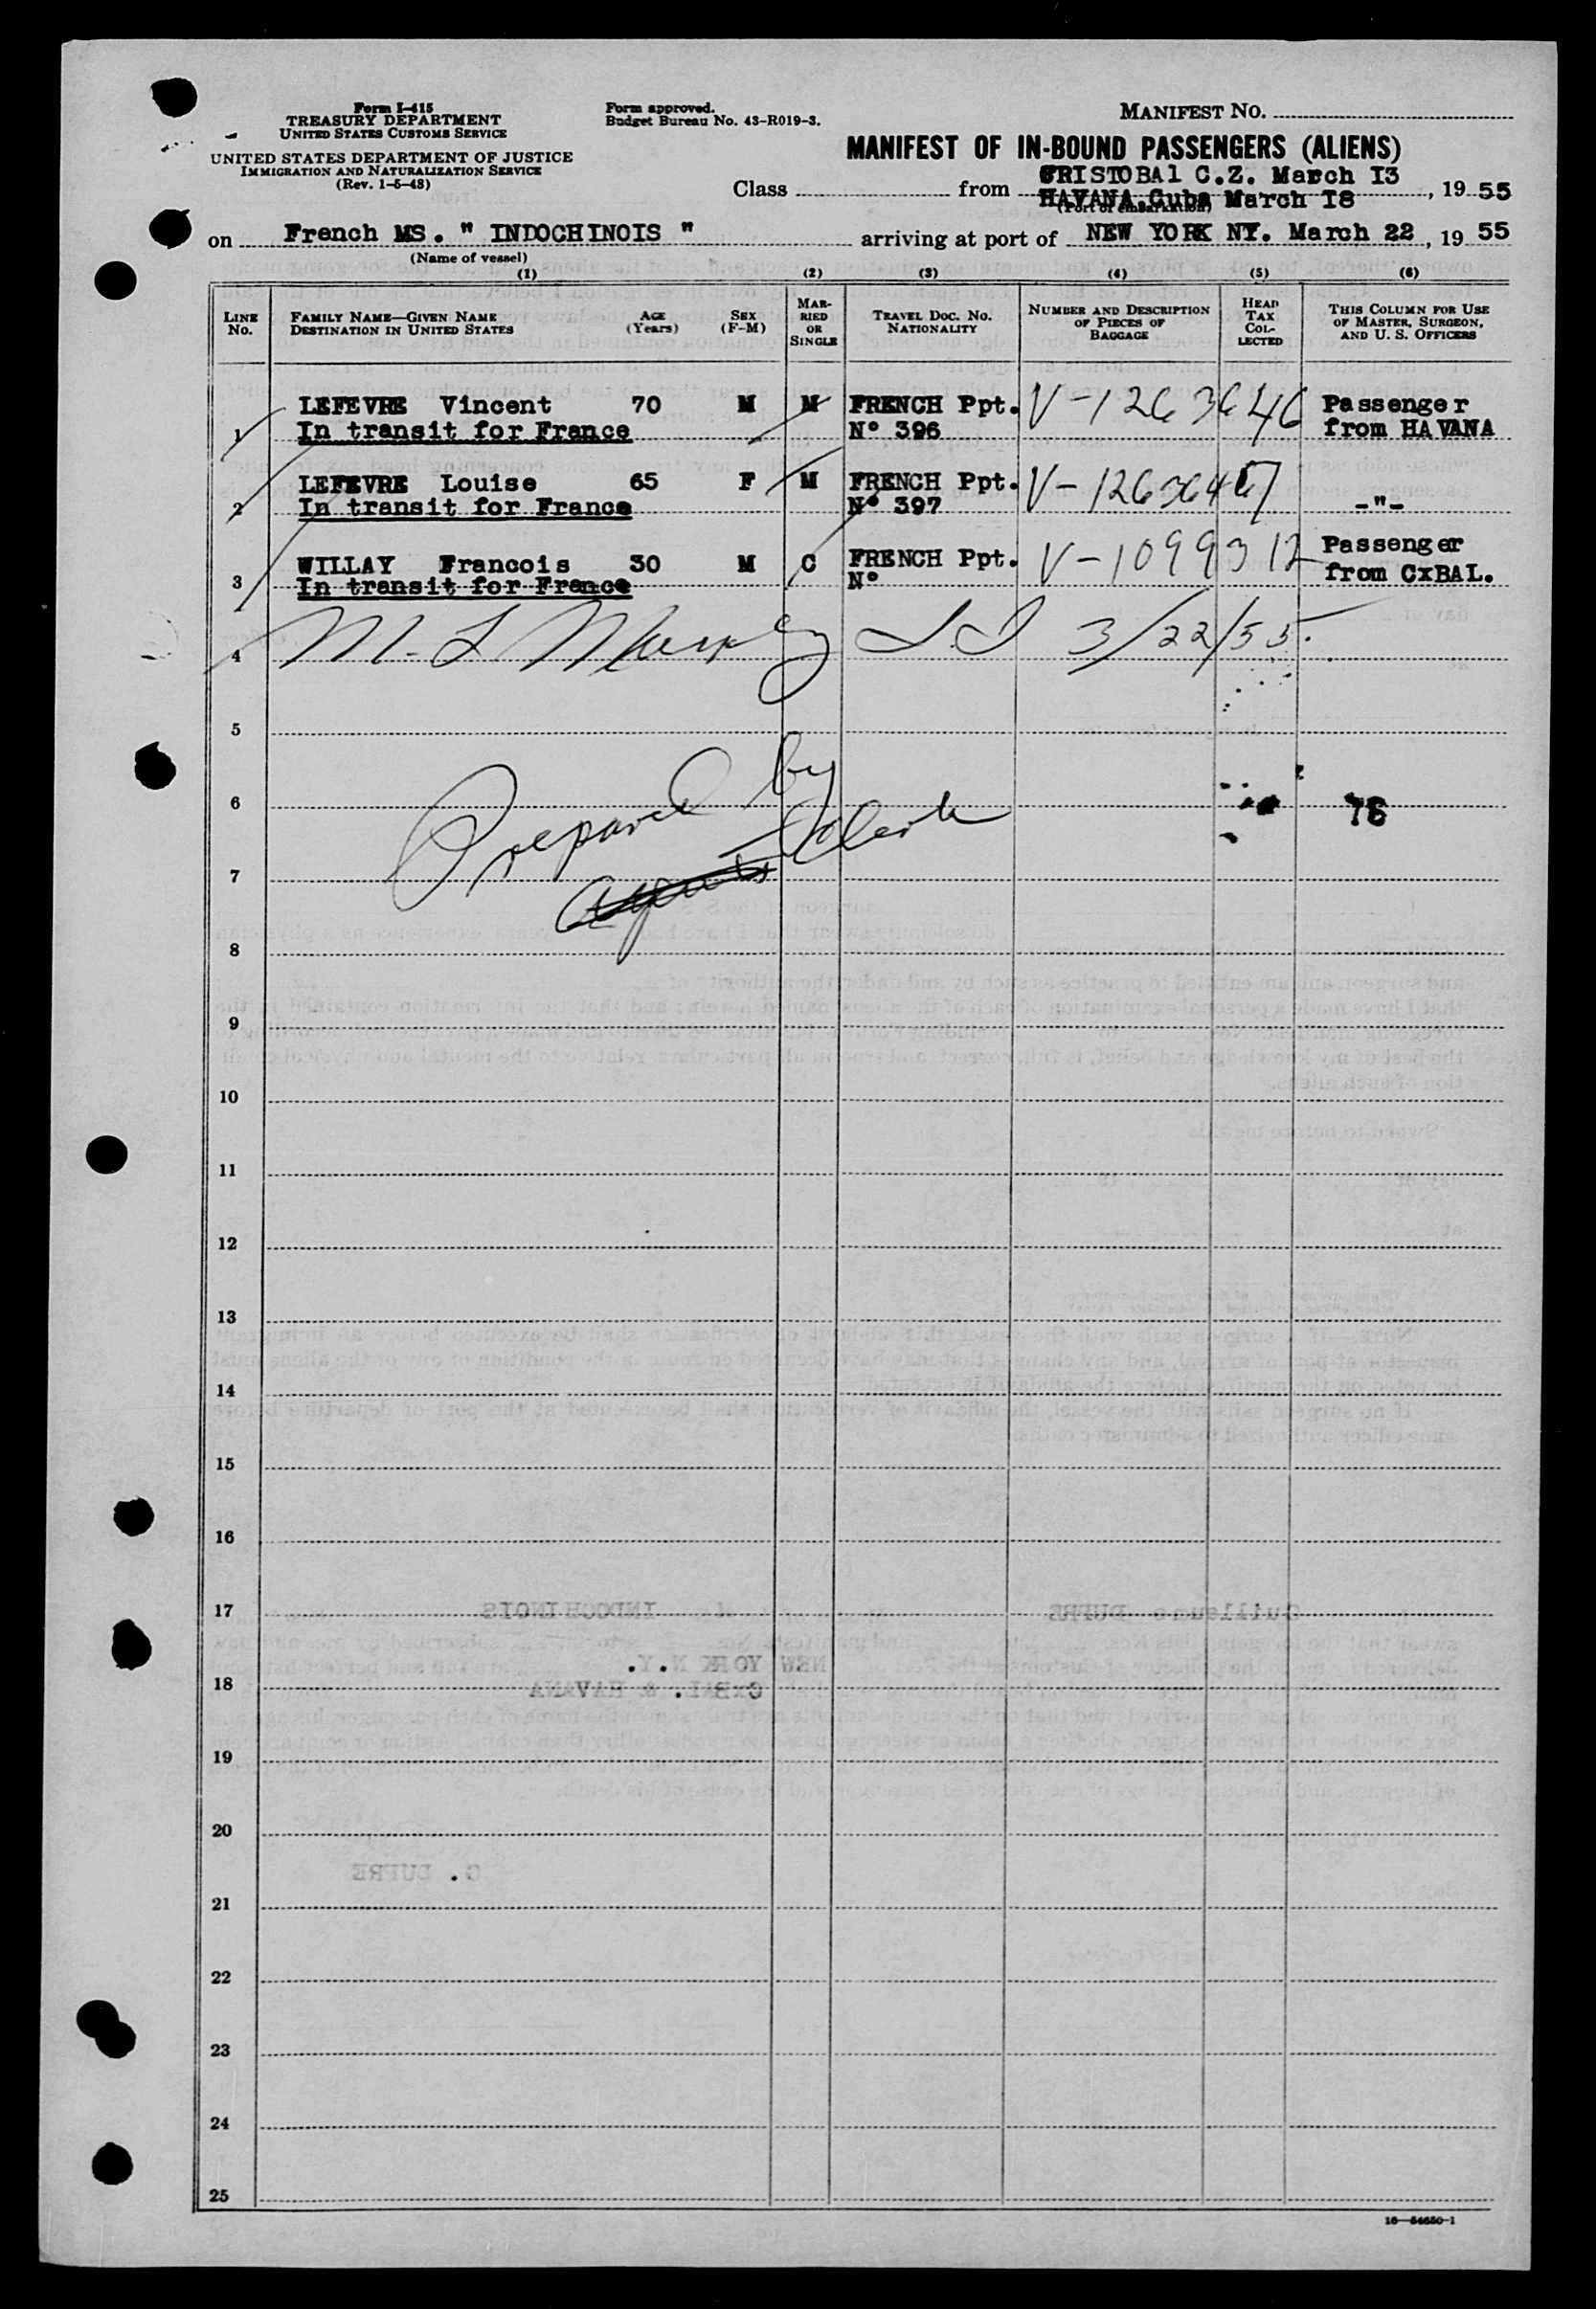 Form I-415
TREASURY DEPARTMENT
UNITED STATES CUSTOMS SERVICE
UNITED STATES DEPARTMENT OF JUSTICE
IMMIGRATION AND NATURALIZATION SERVICE
(Rev. 1-5-48)
Form approved.
Budget Bureau No. 43-R019-3.
MANIFEST NO.
MANIFEST OF IN-BOUND PASSENGERS (ALIENS)
CRISTOBAl C.Z. March I3
Class from HAVANA Cuba March I8, 19 55
(Port of embarkation)
on French MS. " INDOCHINOIS " arriving at port of NEW YORK NY. March 22, 19 55
(Name of vessel)
(1) (2) (3) (4) (5) (6)
LINE No. FAMILY NAME—GIVEN NAME DESTINATION IN UNITED STATES AGE (Years) SEX (F-M) MARRIED OR SINGLE TRAVEL DOC. NO. NATIONALITY NUMBER AND DESCRIPTION OF PIECES OF BAGGAGE HEAD TAX COLLECTED THIS COLUMN FOR USE OF MASTER, SURGEON, AND U. S. OFFICERS
LEFEVRE Vincent 70 M M FRENCH Ppt. V-1263646 Passenger
1 In transit for France N° 396 from HAVANA
LEFEVRE Louise 65 F M FRENCH Ppt. V-1263647
2 In transit for France N° 397 -"-
WILLAY Francois 30 M C FRENCH Ppt. V-1099312 Passenger
3 In transit for France N° from CxBAL.
4 M. L 3/22/55.
5
6 Prepared by 76
7 Clerk
8
9
10
11
12
13
14
15
16
17
18
19
20
21
22
23
24
25
16—54650-1